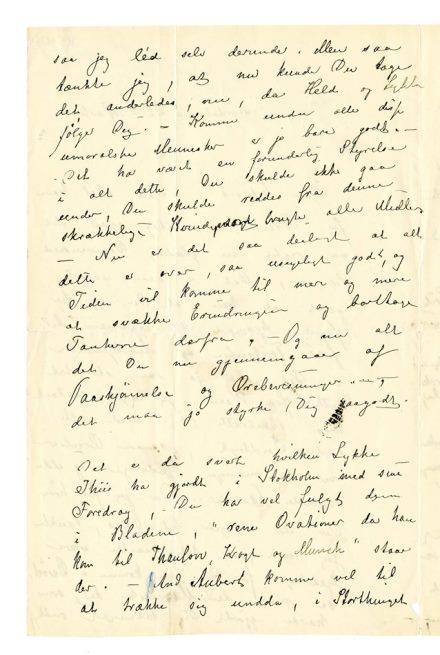 saa jeg léd selv derunde. Men saa
tænkte jeg, at nu kunde Du tage
det anderledes, nu, da Held og Lykke
følger Dig. – Komme under alle disse
umoralske Mennesker er jo bare godt. –
Det har været en forunderlig Styrelse
i alt dette, Du skulde ikke gaa
under, Du skulde reddes fra denne
skrækkelige Kvinde, brugte alle Midler
– Nu er det saa deiligt at alt
dette er over, saa usigeligt godt, og
Tiden vil komme til mer og mere
at svække Erindringen og borttage
Tankerne derfra, – Og nu alt
det Du nu gjennemgaaer af
Paaskjønnelse og Æresbevisninger
det maa jo styrke Dig saa godt.
Det er da svært hvilken Lykke
Thiis ha gjordt i Stokholm med sine
Foredrag, – Du har vel fulgt dem
i Bladene, "rene Ovationer da han
kom til Thaulow, Krogh og Munch" staar
der. – And Aubert komme vel til
at trække sig undda, i Storthinget